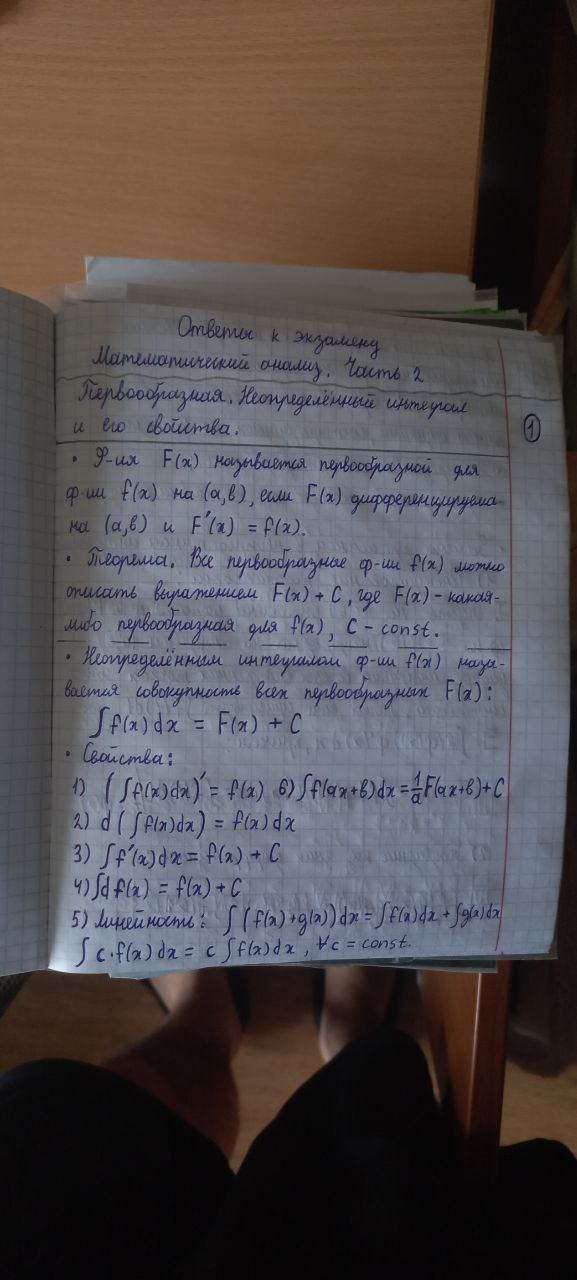 Ответы к экзамену
Математический анализ. Часть 2
Первообразная. Неопределённый интеграл
и его свойства.
1
• Ф-ия F(x) называется первообразной для
ф-ии f(x) на (a,b), если F(x) дифференцируема
на (a,b) и F'(x) = f(x).
• Теорема. Все первообразные ф-ии f(x) можно
описать выражением F(x) + C, где F(x) - какая-
либо первообразная для f(x), C - const.
• Неопределённым интегралом ф-ии f(x) назы-
вается совокупность всех первообразных F(x):
∫f(x)dx = F(x) + C
• Свойства:
1) (∫f(x)dx)' = f(x) 6) ∫f(ax+b)dx = 1/a F(ax+b)+C
2) d(∫f(x)dx) = f(x)dx
3) ∫f'(x)dx = f(x) + C
4) ∫df(x) = f(x) + C
5) линейность: ∫(f(x)+g(x))dx = ∫f(x)dx + ∫g(x)dx
∫c·f(x)dx = c∫f(x)dx, ∀c = const.